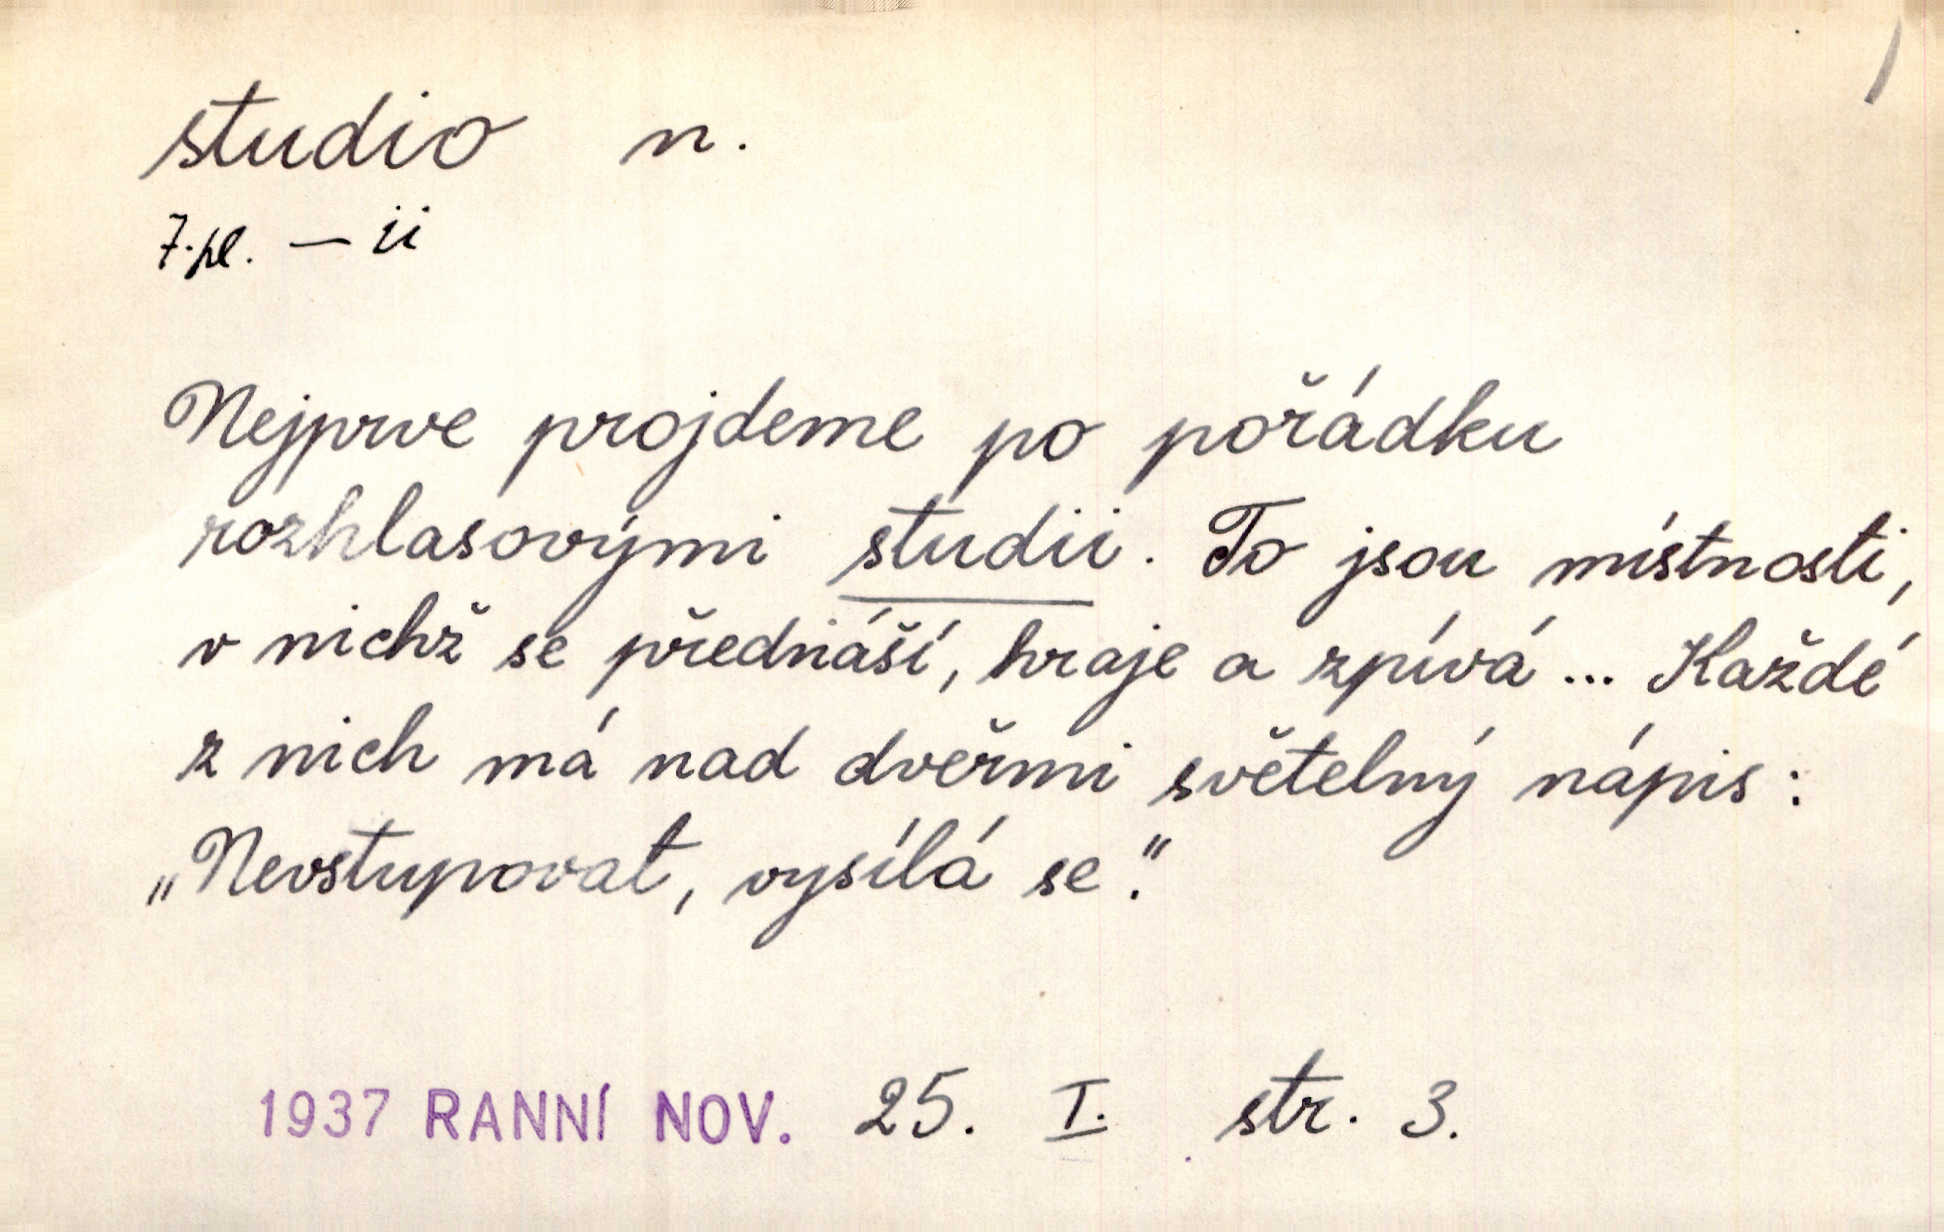 studio n.
7. pl. — ii
Nejprve projdeme po pořádku
rozhlasovými studii. To jsou místnosti,
v nichž se přednáší, hraje a zpívá ... Každé
z nich má nad dveřmi světelný nápis:
„Nevstupovat, vysílá se."
1937 RANNÍ NOV. 25. I. str. 3.